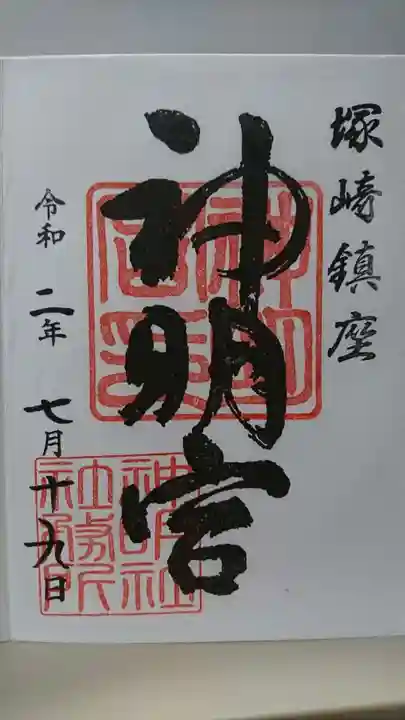 塚崎鎮座
神明宮
令和二年七月十九日
神明社
社務所